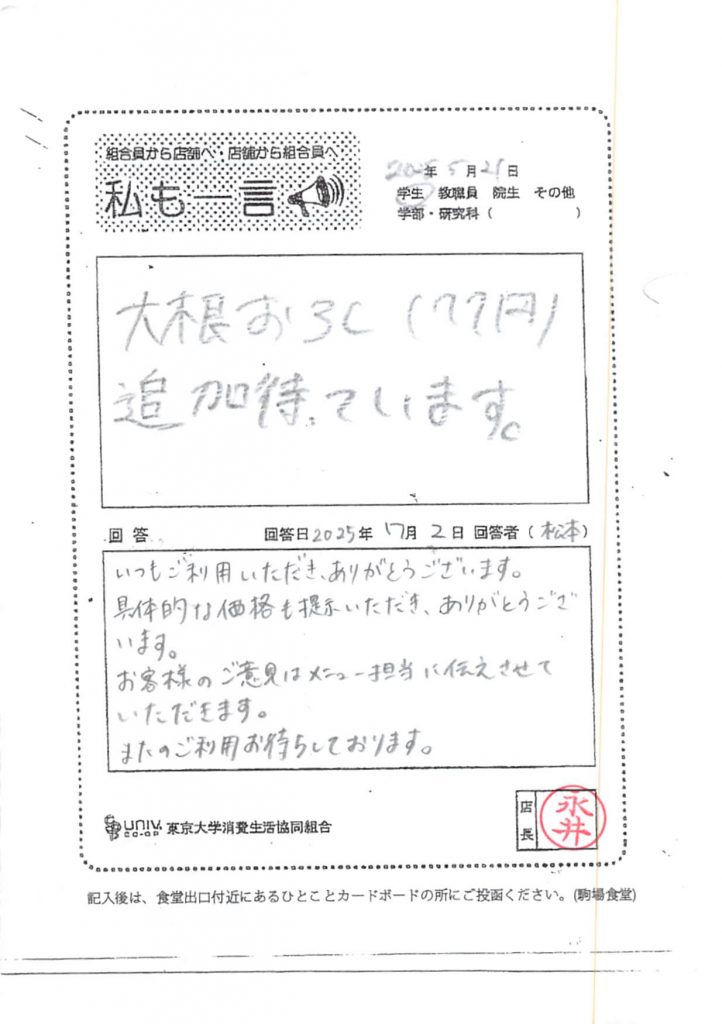 組合員から店舗へ・店舗から組合員へ
私も一言
2025年 5月21日
学生 教職員 院生 その他
学部・研究科（ ）
大根おろし（77円）
追加待っています。
回答 回答日2025年 7月 2日 回答者（松本）
いつもご利用いただき、ありがとうございます。
具体的な価格も提示いただき、ありがとうござ
います。
お客様のご意見はメニュー担当に伝えさせて
いただきます。
またのご利用お待ちしております。
UNIV. CO-OP 東京大学消費生活協同組合
店長 永井
記入後は、食堂出口付近にあるひとことカードボードの所にご投函ください。(駒場食堂)